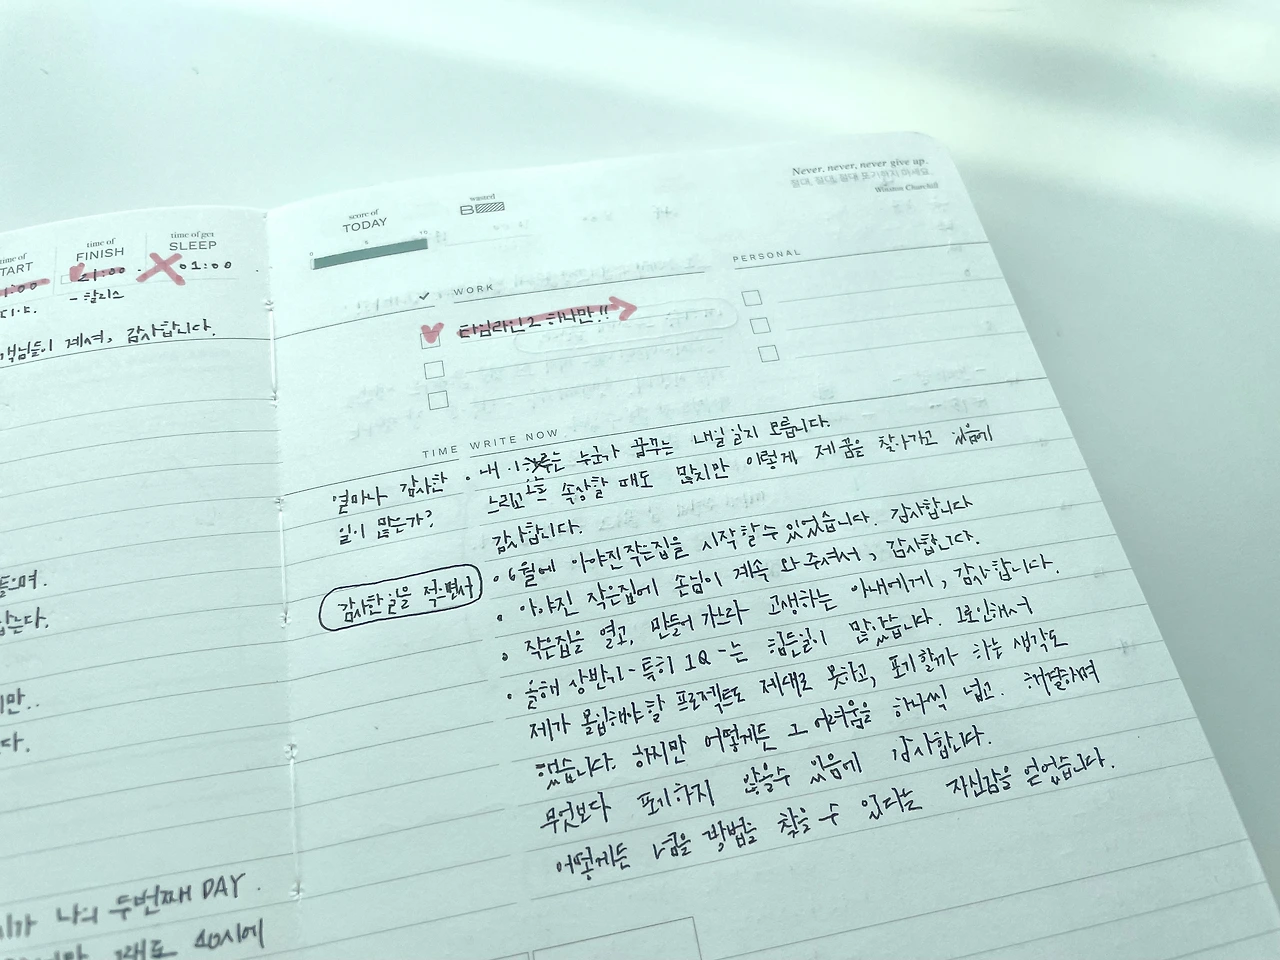 time of
START
time of
FINISH
21:00
- 할리스
time of get
SLEEP
01:00
객님들이 계셔, 감사합니다.
들으며.
지만..
나의 두번째 DAY.
그래도 40시에
score of
TODAY
0 5 10
wasted
B
Never, never, never give up.
절대, 절대, 절대 포기하지 마세요.
Winston Churchill
WORK
타임라인2 하나만!!
PERSONAL
TIME WRITE NOW
얼마나 감사한
일이 많은가?
감사한 일을 적으면서
· 내 오늘은 누군가 꿈꾸는 내일일지 모릅니다.
느리고 속상할 때도 많지만 이렇게 제 꿈을 찾아가고 있음에
감사합니다.
· 6월에 아야진작은집을 시작할 수 있었습니다. 감사합니다
· 아야진 작은집에 손님이 계속 와주셔서, 감사합니다.
· 작은집을 열고, 만들어 가느라 고생하는 아내에게, 감사합니다.
· 올해 상반기-특히 1Q-는 힘든일이 많았습니다. 그로인해서
제가 몰입해야 할 프로젝트도 제대로 못하고, 포기할까 하는 생각도
했습니다. 하지만 어떻게든 그 어려움을 하나씩 넘고. 해결하며
무엇보다 포기하지 않을수 있음에 감사합니다.
어떻게든 넘을 방법을 찾을 수 있다는 자신감을 얻었습니다.